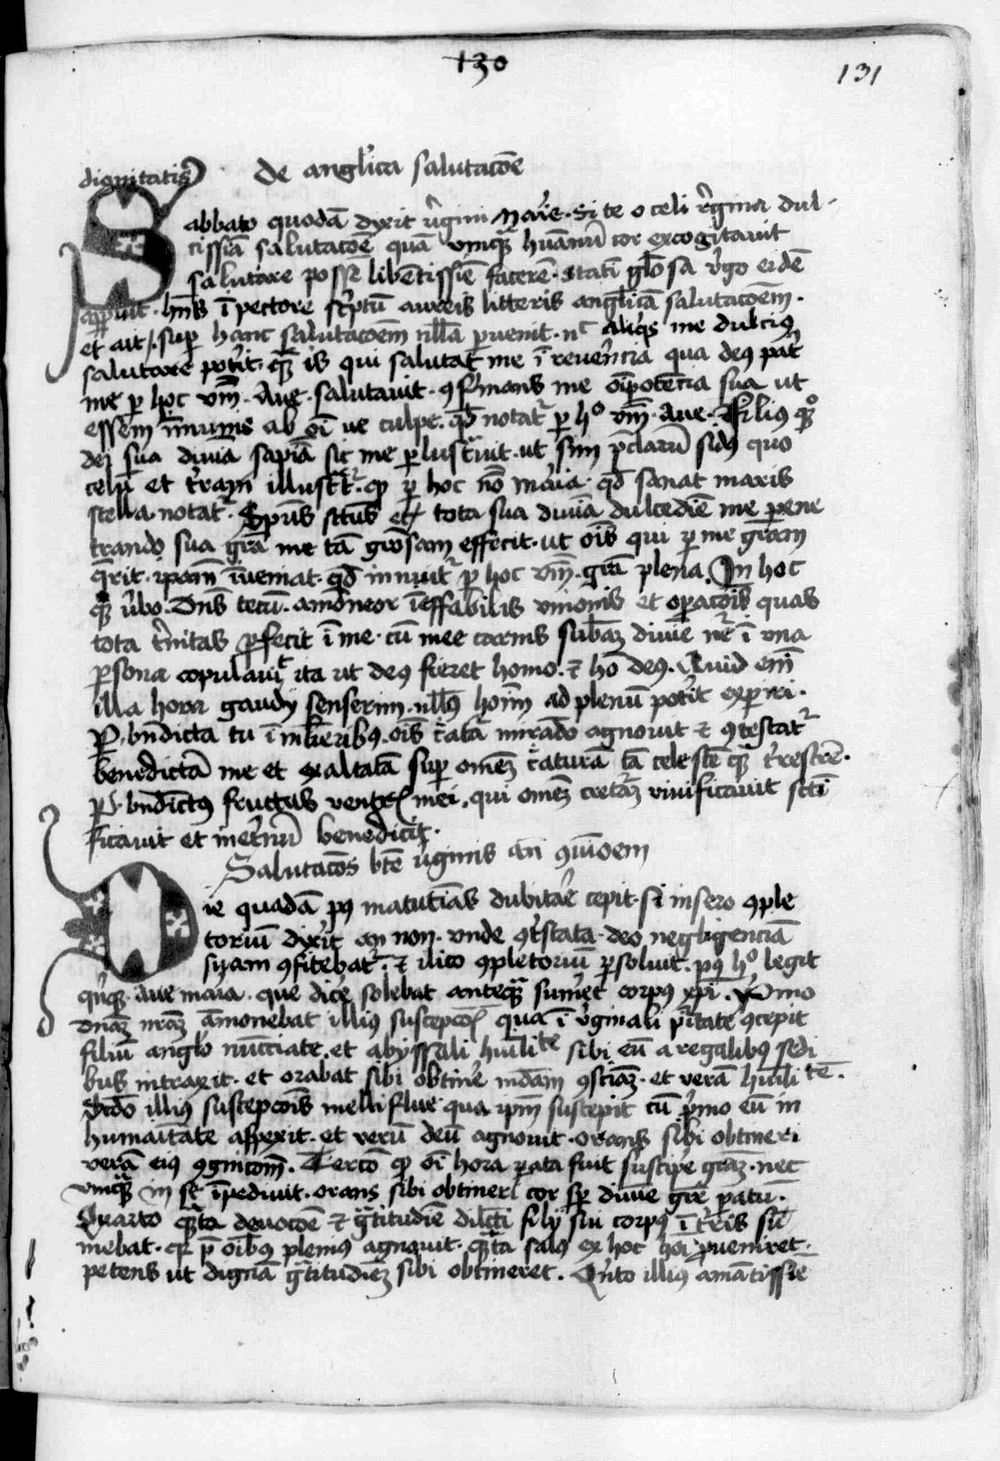 130
131
dignitatis. de angl'ica salutacōe
Sabbato quodā dyxit v̓gini Mar̓e. Si te o celi r̓gina dul-
cissiā salutacōe quā vnq̄ȝ humānū cor excogitauit
salutare possē libētissiē facerē. Statī gl̄osa v̓go eidē
appuit. hn̄s ī pectore sc̓ptū aureis litteris angl'icā salutacōem.
et ait. sup̱ hanc salutacōem nll̄a ꝑuenit. nc̄ aliq̓s me dulciꝰ
salutare pot̓it. q̄ȝ is qui salutat me ī reuēncia qua deꝰ pat̓
me ꝑ hoc vm̄. Aue. salutauit. ꝯfirmans me oīpotēcia sua ut
essem īmunis ab oī ue culpe. qd̄ notat̓ ꝑ hº vm̄. aue. Filiꝰ q̄ȝº
dei sua diuīa sapīa sic me ꝑlust̓uit. ut sim p̄clarū sidꝰ quo
celū et t̓ram illust̓t̓. qꝫ ꝑ hoc nō maīa qd̄ sonat maris
stella notat̓. Sp̄us sctūs et̄ tota sua diuīa dulcediē me ꝑene
trando sua gr̄a me tā gr̄osam effecit. ut oīs qui ꝑ me gr̄am
q̄rit. ip̄am īueniat. qd̄ innuit̓ ꝑ hoc vm̄. gr̄a plena. In hoc
q̄ȝ ūbo. Dn̄s tecū. amōneor īeffabilis vnionis et oꝑacōis quas
tota t̓nitas ꝑfecit ī me. cū mee carnis subāȝ diuīe nr̄e ī vna
ꝑsona copulauit ita ut deꝰ fieret homo. ⁊ hō deꝰ. Quid enī
illa hora gaudy senserim. nll̄ꝰ hoīm ad plenū pot̓it exꝑiri.
Ꝑ. bn̄dicta tu ī ml̓ieribꝰ. oīs c̓atā mirādo agnouit ⁊ ꝯtestat̓
benedictā me et exaltatā sup̱ omeȝ c̓aturā tā celestē q̄ȝ t̓restrē.
Ꝑ. bn̄dictꝰ fructus ventꝭ mei. qui omēȝ creātāȝ viuificauit scti
ficauit et inet̓nū benedicit.
Salutacōs btē v̓ginis an̄ ꝯuīoem
Die quadā pꝰ matutīas dubitar̓e cepit. si insero ꝯple
toriū dyx̓it an non. vnde ꝯt̓stata. deo negligenciā
suam ꝯfitebat̓. ⁊ ilico ꝯpletoriū ꝑsoluit. pꝰ hº legit
q̓nq̄ȝ. aue maīa. que dic̓e solebat anteq̄ȝ sum̓et corpꝰ xp̄i. P̓mo
dn̄aȝ nr̄aȝ āmonebat illiꝰ suscepcōꝭ qua ī v̓ginali p̓itate ꝯcepit
filiū angl̓o nūcciate. et abyssali huīlite sibi eū a regalibꝰ sedi
bus intraxit. et orabat sibi obtin̓e mdām ꝯsciāȝ. et verā huīlitē.
Scd̄o illiꝰ suscepcōis melliflue qua ip̄m suscepit cū p̓mo eū in
humaītate aspexit. et verū deū agnouit. orans sibi obtineri
verā eiꝰ ꝯgnicōnē. Tercō qꝫ oī hora ꝑata fuit suscip̓e gr̄aȝ. nec
vnq̄ȝ in se īpediuit. orans sibi obtineri cor sp̱ diuīe gr̄e ꝑatū.
Quarto q̄ȝta deuocōe ⁊ g̓titudiē dilc̄ti fily sui corpꝰ ī t̓ris su
mebat. qꝫ p̄ oībꝰ pleniꝰ agnouit. q̄ȝta salꝰ ex hoc hoī ꝓueniret.
petens ut dignā g̓titudiēȝ sibi obtineret. Q̓nto illiꝰ amātissie